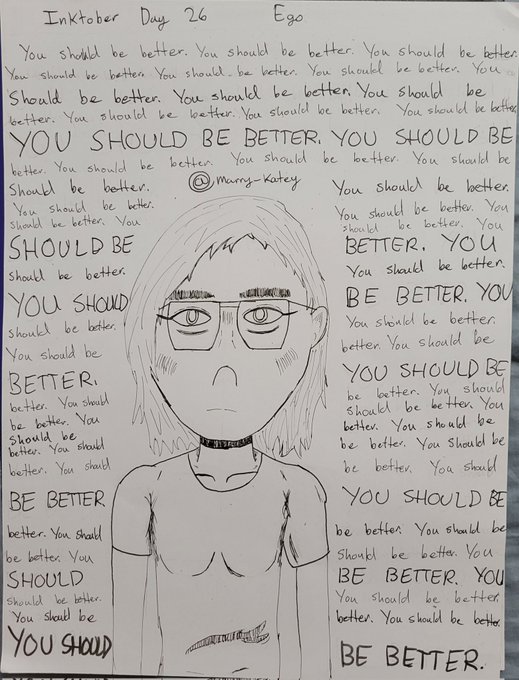 Inktober Day 26 Ego
You should be better. You should be better. You should be better.
You should be better. You should be better. You should be better. You
Should be better. You should be better. You should be
better. You should be better. You should be better. You should be better.
YOU SHOULD BE BETTER. YOU SHOULD BE
better. You should be better. You should be better. You should be
Should be better. @Marry_Katey You should be better.
You should be better. You should be better. You
should be better. You should be better. You
SHOULD BE BETTER. YOU
should be better. You should be better.
YOU SHOULD BE BETTER. YOU
should be better. You should be better.
You should be better. You should be
BETTER. YOU SHOULD BE
better. You should be better. You should
be better. You should be better. You
should be better. You should be
better. You should be better. You Should be
better. You should be better. You should
BE BETTER. YOU SHOULD BE
better. You should be better. You should be
be better. You Should be better. You
SHOULD BE BETTER. YOU
should be better. You should be better.
You should be better. You should be better.
YOU SHOULD BE BETTER.